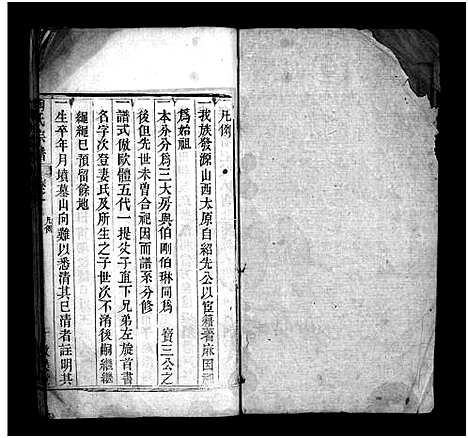 凡例
一我族發源山西太原自紹先公以宦籍著麻因祖
爲始祖
一本分分爲三大房與伯剛伯琳同爲 寶三公之
後但先世未曾合祀因而譜系分修
一譜式倣歐體五代一提父于直下兄弟左旋首書
名字次登妻氏及所生之子世次不淆後嗣繼繼
繩繩已預留餘地
一生卒年月墳墓山向難以悉清其已清者註明其
氏宗譜
凡例